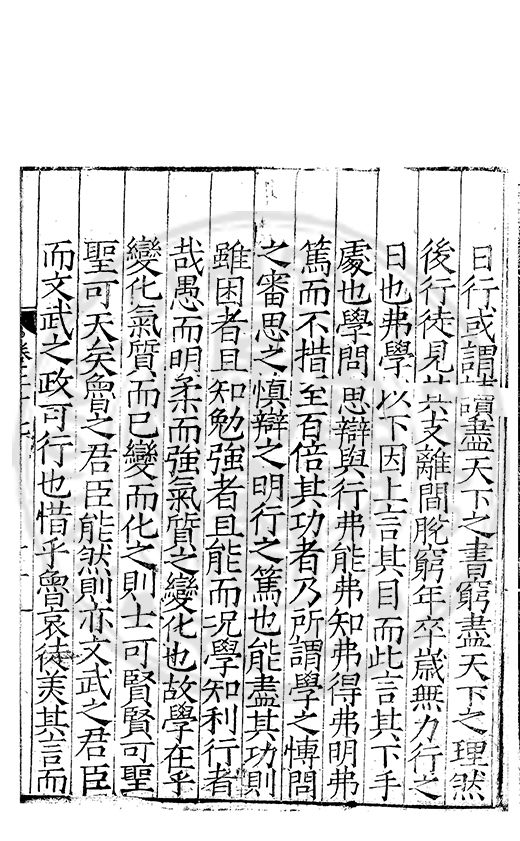 日行或謂讀盡天下之書窮盡天下之理然
後行徒見其支離間脫窮年卒歲無力行之
日也弗學以下因上言其目而此言其下手
處也學問思辯與行弗能弗知弗得弗明弗
篤而不措至百倍其功者乃所謂學之博問
之審思之慎辯之明行之篤也能盡其功則
雖困者且知勉強者且能而況學知利行者
哉愚而明柔而強氣質之變化也故學在乎
變化氣質而已變而化之則士可賢賢可聖
聖可天矣魯之君臣能然則亦文武之君臣
而文武之政可行也惜乎魯哀徒美其言而